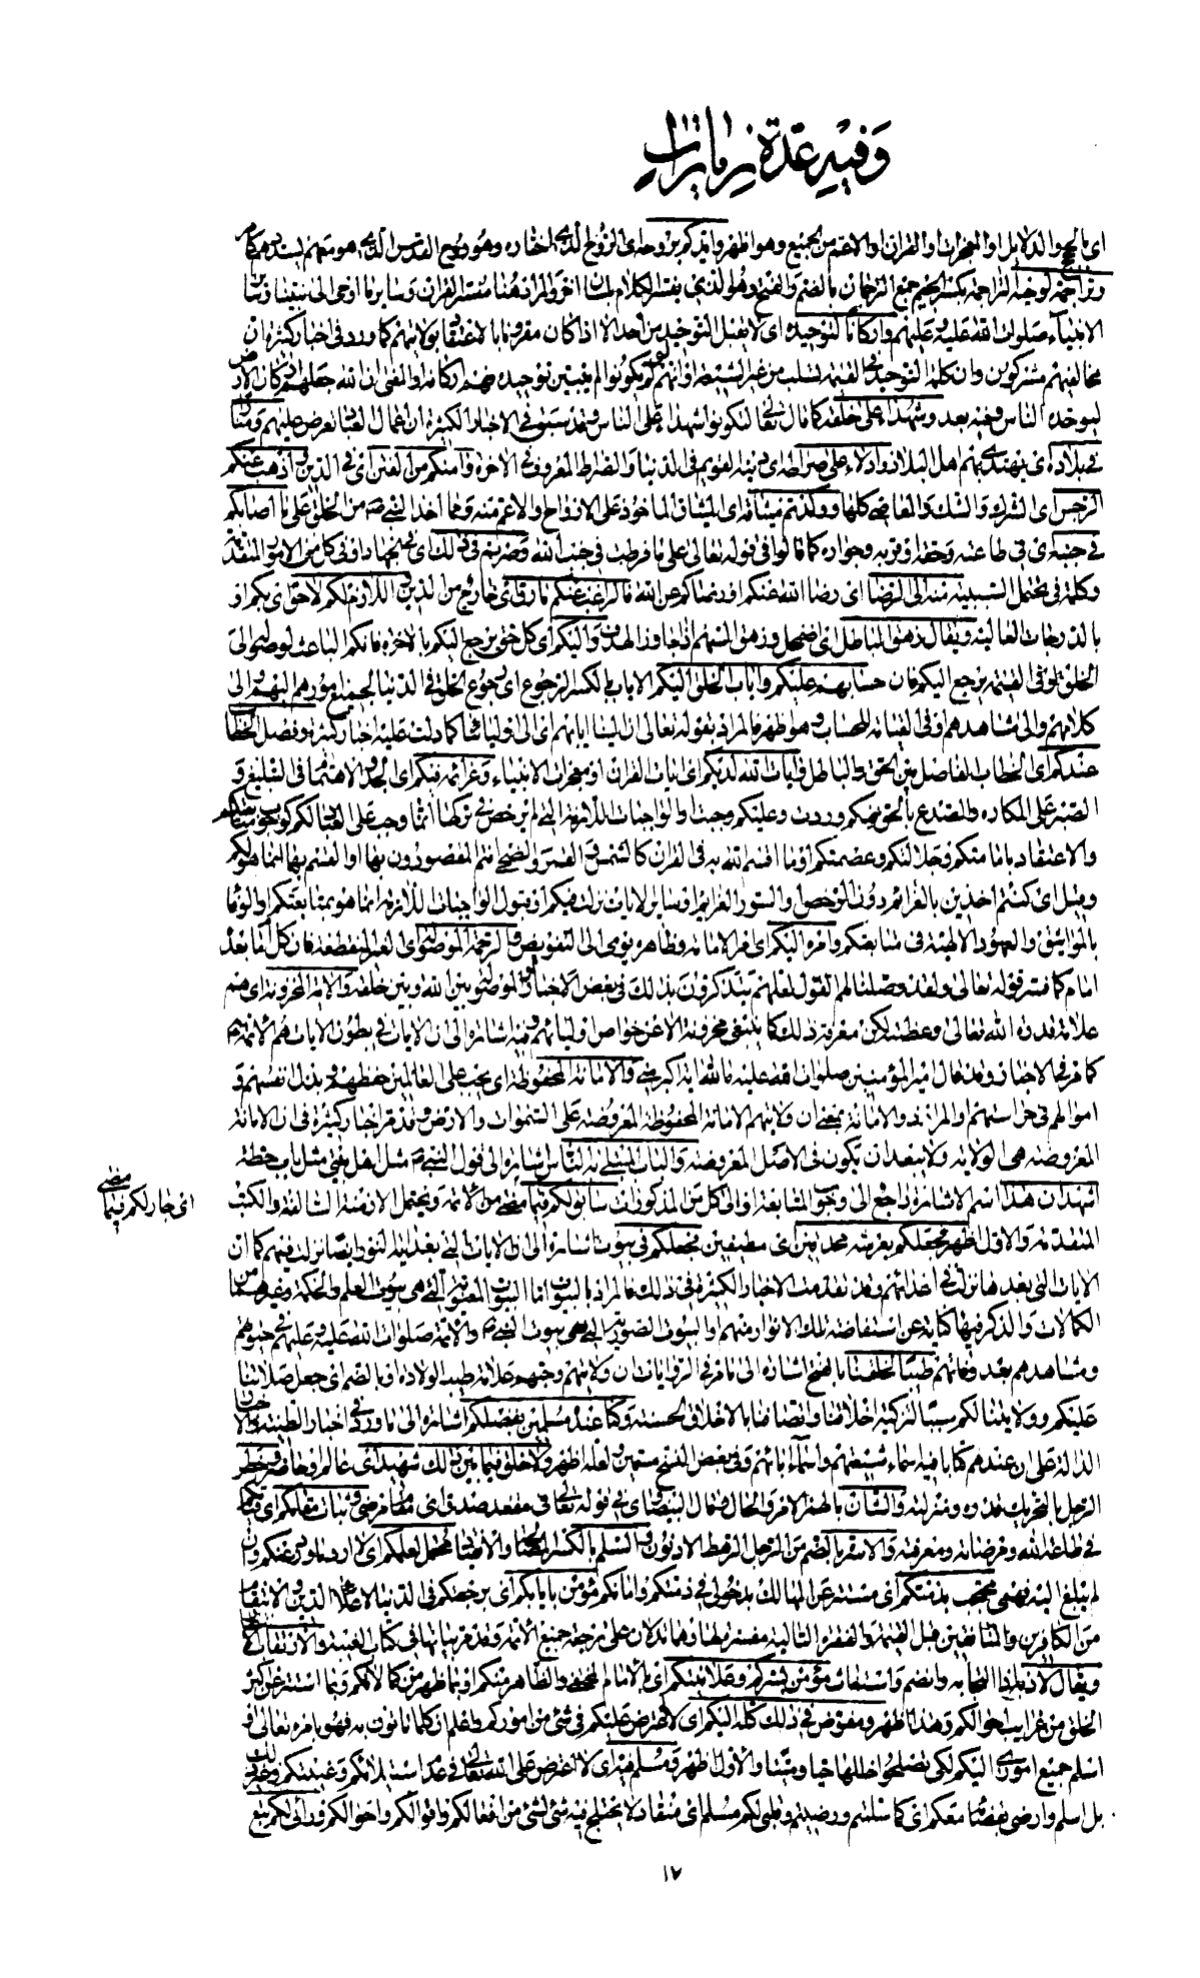 وفيه عدة زيارات
اى بالحجج والدلايل او المعجزات او القران او الاعم من الجميع وهو اظهر وايدكم بروحه اى الروح الذى اختاره وهو روح القدس الذى هو معهم يسددهم كما مر
وتراجمة لوحيه التراجمة بكسر الجيم جمع الترجمان بالضم والفتح وهو الذى يفسر الكلام بلسان اخر والمراد هنا مفسر القران وساير ما اوحى الى نبينا وساير
الانبياء صلوات الله عليه وعليهم واركانا لتوحيده اى لا يقبل التوحيد من احد الا اذا كان مقرونا بالاعتقاد بولايتهم كما ورد فى اخبار كثيرة ان
مخالفيهم مشركون وان كلمة التوحيد فى القيمة تسلب من غير الشيعة او انهم لو لم يكونوا لم يتبين توحيده فهم اركانه او المعنى ان الله جعلهم اركان الارض
ليوحده الناس وفيه بعد وشهداء على خلقه كما قال تعالى لتكونوا شهداء على الناس وقد سبق فى الاخبار الكثيرة ان اعمال العباد تعرض عليهم ومنارا
فى بلاده اى يهتدى بهم اهل البلاد وادلاء على صراطه اى دينه القويم فى الدنيا والصراط المعروف فى الاخرة وآمنكم من الفتن اى فى الدين واذهب عنكم
الرجس اى الشرك والشك والمعاصى كلها ووكدتم ميثاقه اى الميثاق الماخوذ على الارواح والاعم منه ومما اخذ النبى ص من الخلق على ما اصابكم
فى جنبه اى فى طاعته وحقه او قربه وجواره كما قالوا فى قوله تعالى على ما فرطت فى جنب الله وصرتم فى ذلك اى الجهاد او فى كل من الامور المتقدمة
وكلمة فى يحتمل السببية منه الى الرضا اى رضا الله عنكم او رضاكم عن الله فالراغب عنكم مارق اى خارج من الدين واللازم لكم لاحق اى بكم او
بالدرجات العالية ويقال زهق الباطل اى اضمحل وزهق السهم اذا جاوز الهدف واليكم اى كل حق يرجع اليكم بالاخرة فانكم الباعث لوصوله الى
الخلق او فى القيمة يرجع اليكم فان حسابهم عليكم واياب الخلق اليكم الاياب بالكسر الرجوع اى رجوع الخلق فى الدنيا لجميع امورهم اليهم والى
كلامهم والى مشاهدهم او فى القيامة للحساب وهو اظهر فالمراد بقوله تعالى ان الينا ايابهم اى الى اوليائنا كما دلت عليه اخبار كثيرة وفصل الخطاب
عندكم اى الخطاب الفاصل بين الحق والباطل وآيات الله لديكم اى ايات القران او معجزات الانبياء وعزائمه فيكم اى الجد والاهتمام فى التبليغ و
الصبر على المكاره والصدع بالحق فيكم وردت وعليكم وجبت او الواجبات اللازمة التى لم يرخص فى تركها انما وجب على العباد لكم كوجوب متابعتكم
والاعتقاد بامامتكم وجلالتكم وعصمتكم او ما اقسم الله به فى القران كالشمس والقمر والضحى انتم المقصودون بها او القسم بها انما هو لكم
وقيل اى كنتم آخذين بالعزائم دون الرخص او السور العزائم او ساير الايات نزلت فيكم او قبول الواجبات اللازمة انما هو بمتابعتكم او الوفاء
بالمواثيق والعهود الالهية فى متابعتكم وامره اليكم اى امر الامامة وظاهره يومى الى التفويض والرحمة الموصولة اى الغير المنقطعة فان كل امام بعده
امام كما فسر قوله تعالى ولقد وصلنا لهم القول لعلهم يتذكرون بذلك فى بعض الاخبار او الموصولة بين الله وبين خلقه والاية المخزونة اى هم
علامة قدرة الله تعالى وعظمته لكن معرفة ذلك كما ينبغى مخزونة الا عن خواص اوليائهم وفيه اشارة الى ان الايات فى بطون الايات هم الائمة ع
كما مر فى الاخبار وقد قال امير المؤمنين صلوات الله عليه ما لله اية اكبر منى والامانة المحفوظة اى يجب على العالمين حفظهم وبذل نفسهم و
اموالهم فى حراستهم والمراد ذو الامانة بمعنى ان ولايتهم الامانة المحفوظة المعروضة على السموات والارض وقد مر اخبار كثيرة فى ان الامانة
المعروضة هى الولاية ولا يبعد ان تكون فى الاصل المعروضة والباب المبتلى به الناس اشارة الى قول النبى ص مثل اهل بيتى مثل باب حطة
اشهد ان هذا اسم الاشارة راجع الى وجوب المتابعة او الى كل من المذكورات سابق لكم فيما مضى من الائمة ويحتمل الازمنة السالفة والكتب
اى جار لكم فيما مضى
المتقدمة والاول اظهر فجعلكم بعرشه محدقين اى مطيفين فجعلكم فى بيوت اشارة الى ان الايات التى بعد اية النور ايضا نزلت فيهم كما ان
الايات التى بعدها نزلت فى اعدائهم وقد تقدمت الاخبار الكثيرة فى ذلك فالمراد بالبيوت اما البيوت المعنوية التى هى بيوت العلم والحكمة وغيرهما من
الكمالات والذكر فيها كناية عن استفاضة تلك الانوار منهم او البيوت الصورية التى هى بيوت النبى ص والائمة صلوات الله عليه وعليهم فى حيوتهم
ومشاهدهم بعد وفاتهم طيبا لخلقنا بالفتح اشارة الى ما مر فى الروايات ان ولايتهم وحبهم علامة طيب الولادة او بالضم اى جعل صلاتنا
عليكم وولايتنا لكم سببا لتزكية اخلاقنا واتصافنا بالاخلاق الحسنة وكنا عنده مسلمين بفضلكم اشارة الى ما ورد فى اخبار الطينة والاخبار
الدالة على ان عندهم كتابا فيه اسماء شيعتهم واسماء ابائهم وفى بعض النسخ مسمين ولعله اظهر ولا خلق فيما بين ذلك شهيد اى عالم او حاضر وخطر
الرجل بالتحريك قدره ومنزلته والشان بالهمز الامر والحال وقال البيضاوى فى قوله تعالى فى مقعد صدق اى مقام مرضى وثبات مقامكم اى قيامكم
فى طاعة الله ومرضاته ومعرفته والاسرة بالضم من الرجل الرهط الادنون والسلم بالكسر الصلح والانقياد محتمل لعلمكم اى لا ارد ما ورد عنكم وان
لم يبلغ اليه فهمى محتجب بذمتكم اى مستتر عن المهالك بدخولى فى ذمتكم وامانكم مؤمن بايابكم اى برجعتكم فى الدنيا لاعلاء الدين والانتقام
من الكافرين والمنافقين قبل القيمة والفقرة التالية مفسرة لها وهما تدلان على رجعة جميع الائمة وقد مر بيانها فى كتاب الغيبة والارتقاب
ويقال لاذ به اذا التجأ به وانضم واستغاث مؤمن بسركم وعلانيتكم اى بالامام المخفى والظاهر منكم او بما ظهر من كمالاتكم وبما استتر عن اكثر
الخلق من غرايب احوالكم وهذا اظهر ومفوض فى ذلك كله اليكم اى لا اعترض عليكم فى شئ من اموركم واعلم ان كلما تاتون به فهو بامره تعالى او
اسلم جميع امورى اليكم لكى تصلحوا خللها حيا وميتا والاول اظهر ومسلم فيه اى لا اعترض على الله تعالى فى عدم استيلائكم وغيبتكم وغير ذلك
بل اسلم وارضى بقضائه معكم اى كما سلمتم ورضيتم وقلبى لكم مسلم اى منقاد لا يختلج فيه شئ لشئ من افعالكم واقوالكم واحوالكم ورائى لكم تبع
١٧